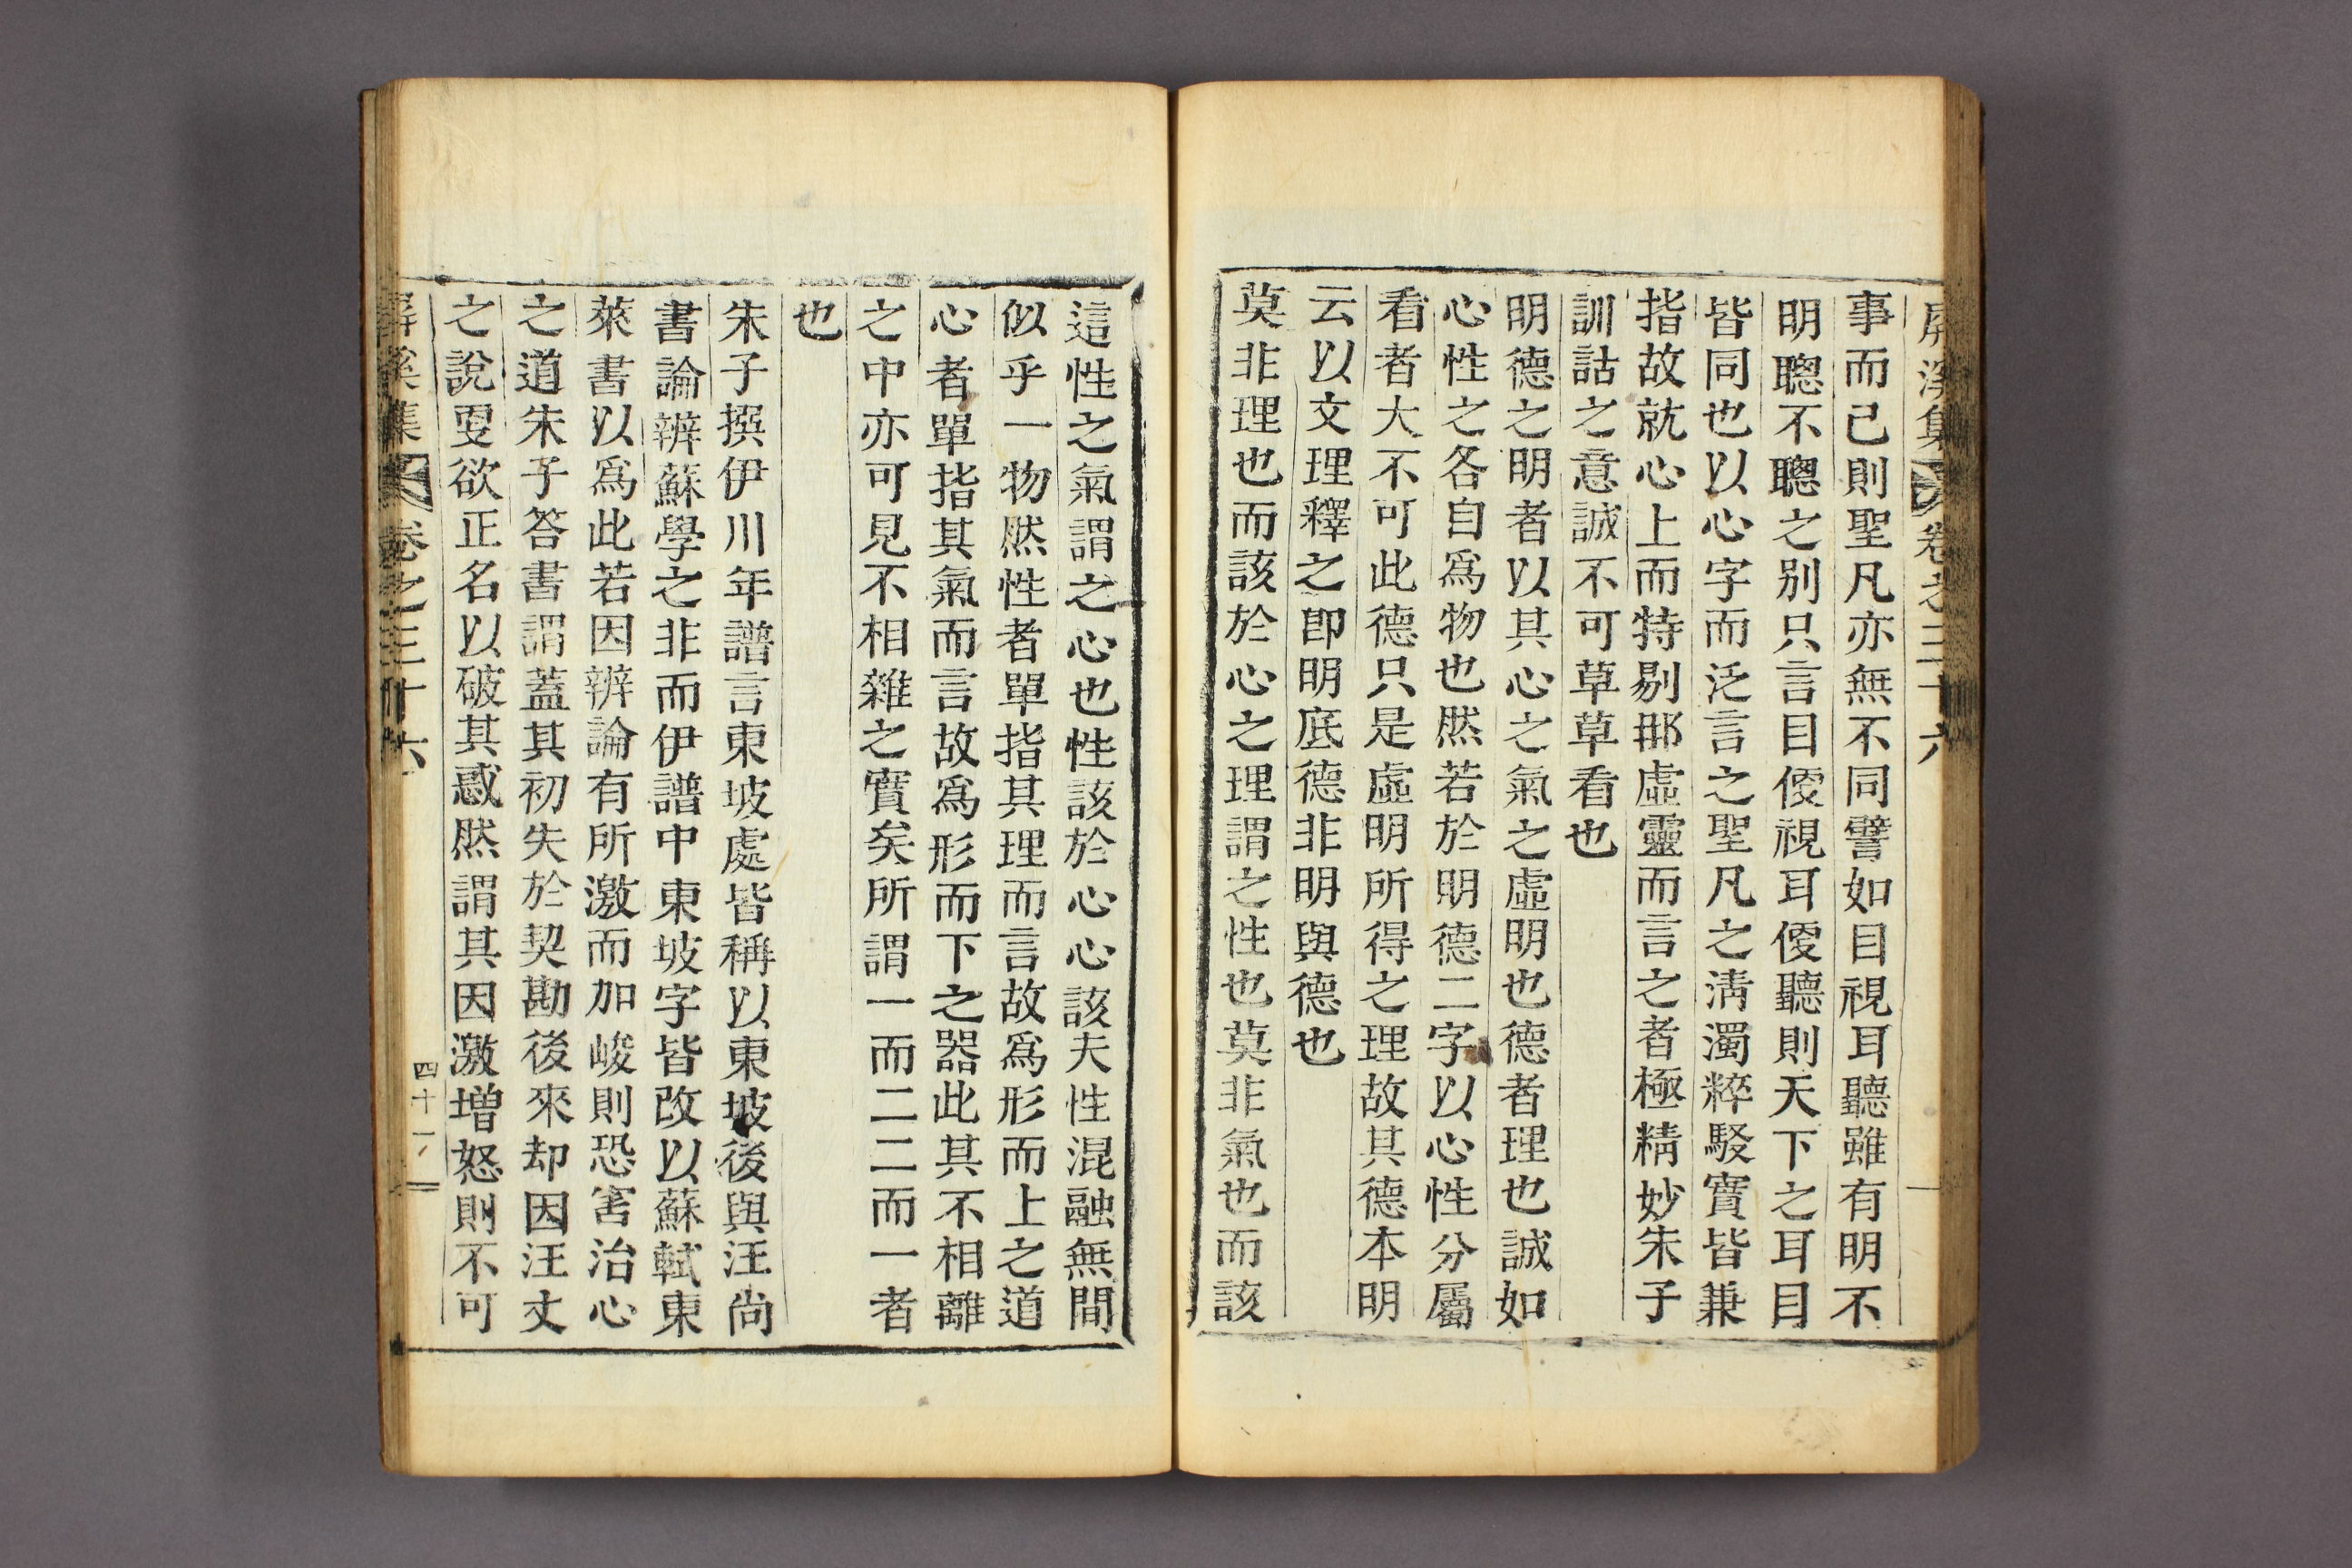 屏溪集 卷之三十六
事而已則聖凡亦無不同譬如目視耳聽雖有明不
明聰不聰之别只言目傻視耳傻聽則天下之耳目
皆同也以心字而泛言之聖凡之淸濁粹駁實皆兼
指故就心上而特剔那虛靈而言之者極精妙朱子
訓詁之意誠不可草草看也
明德之明者以其心之氣之虛明也德者理也誠如
心性之各自爲物也然若於明德二字以心性分屬
看者大不可此德只是虛明所得之理故其德本明
云以文理釋之卽明底德非明與德也
莫非理也而該於心之理謂之性也莫非氣也而該
這性之氣謂之心也性該於心心該夫性混融無間
似乎一物然性者單指其理而言故爲形而上之道
心者單指其氣而言故爲形而下之器此其不相離
之中亦可見不相雜之實矣所謂一而二二而一者
也
朱子撰伊川年譜言東坡處皆稱以東坡後與汪尙
書論辨蘇學之非而伊譜中東坡字皆改以蘇軾東
萊書以爲此若因辨論有所激而加峻則恐害治心
之道朱子答書謂蓋其初失於契勘後來却因汪丈
之說更欲正名以破其惑然謂其因激增怒則不可
屏溪集 卷之三十六 四十一